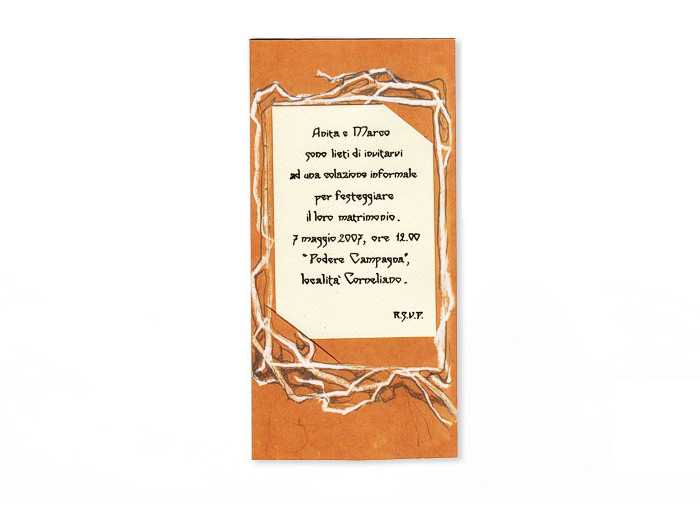 Anita e Marco
sono lieti di invitarvi
ad una colazione informale
per festeggiare
il loro matrimonio.
7 maggio 2007, ore 12.00
"Podere Campagna",
località Corneliano.
R.S.V.P.